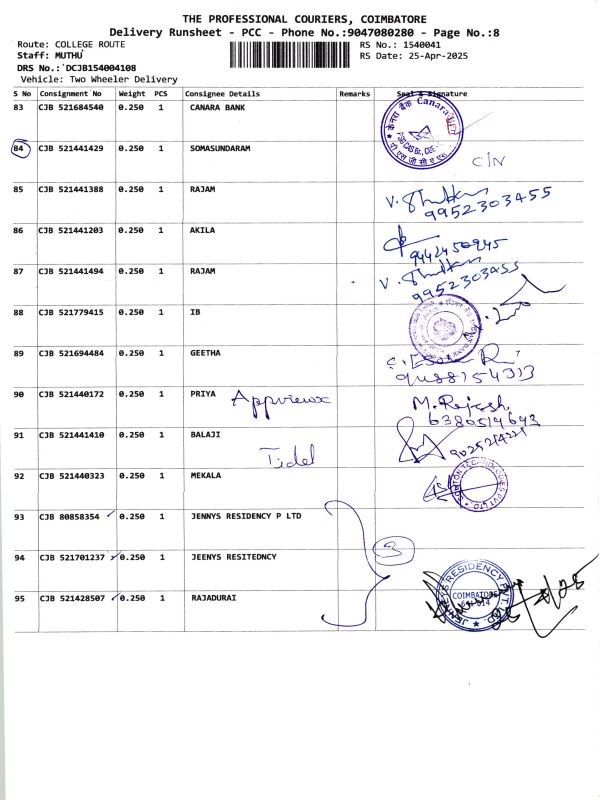 THE PROFESSIONAL COURIERS, COIMBATORE
Delivery Runsheet - PCC - Phone No.:9047080280 - Page No.:8
Route: COLLEGE ROUTE RS No.: 1540041
Staff: MUTHU RS Date: 25-Apr-2025
DRS No.: DCJB154004108
Vehicle: Two Wheeler Delivery
S No Consignment No Weight PCS Consignee Details Remarks Seal & Signature
83 CJB 521684540 0.250 1 CANARA BANK
केनरा बैंक Canara
84 CJB 521441429 0.250 1 SOMASUNDARAM C/N
85 CJB 521441388 0.250 1 RAJAM
9952303455
86 CJB 521441203 0.250 1 AKILA
9442450945
87 CJB 521441494 0.250 1 RAJAM
9952303455
88 CJB 521779415 0.250 1 IB
89 CJB 521694484 0.250 1 GEETHA
90 CJB 521440172 0.250 1 PRIYA Appviewx M.Rajesh
6380514643
91 CJB 521441410 0.250 1 BALAJI Tidel
92 CJB 521440323 0.250 1 MEKALA
93 CJB 80858354 0.250 1 JENNYS RESIDENCY P LTD
3
94 CJB 521701237 0.250 1 JEENYS RESITEDNCY
95 CJB 521428507 0.250 1 RAJADURAI
JENNEYS RESIDENCY PVT. LTD.
COIMBATORE
641 014